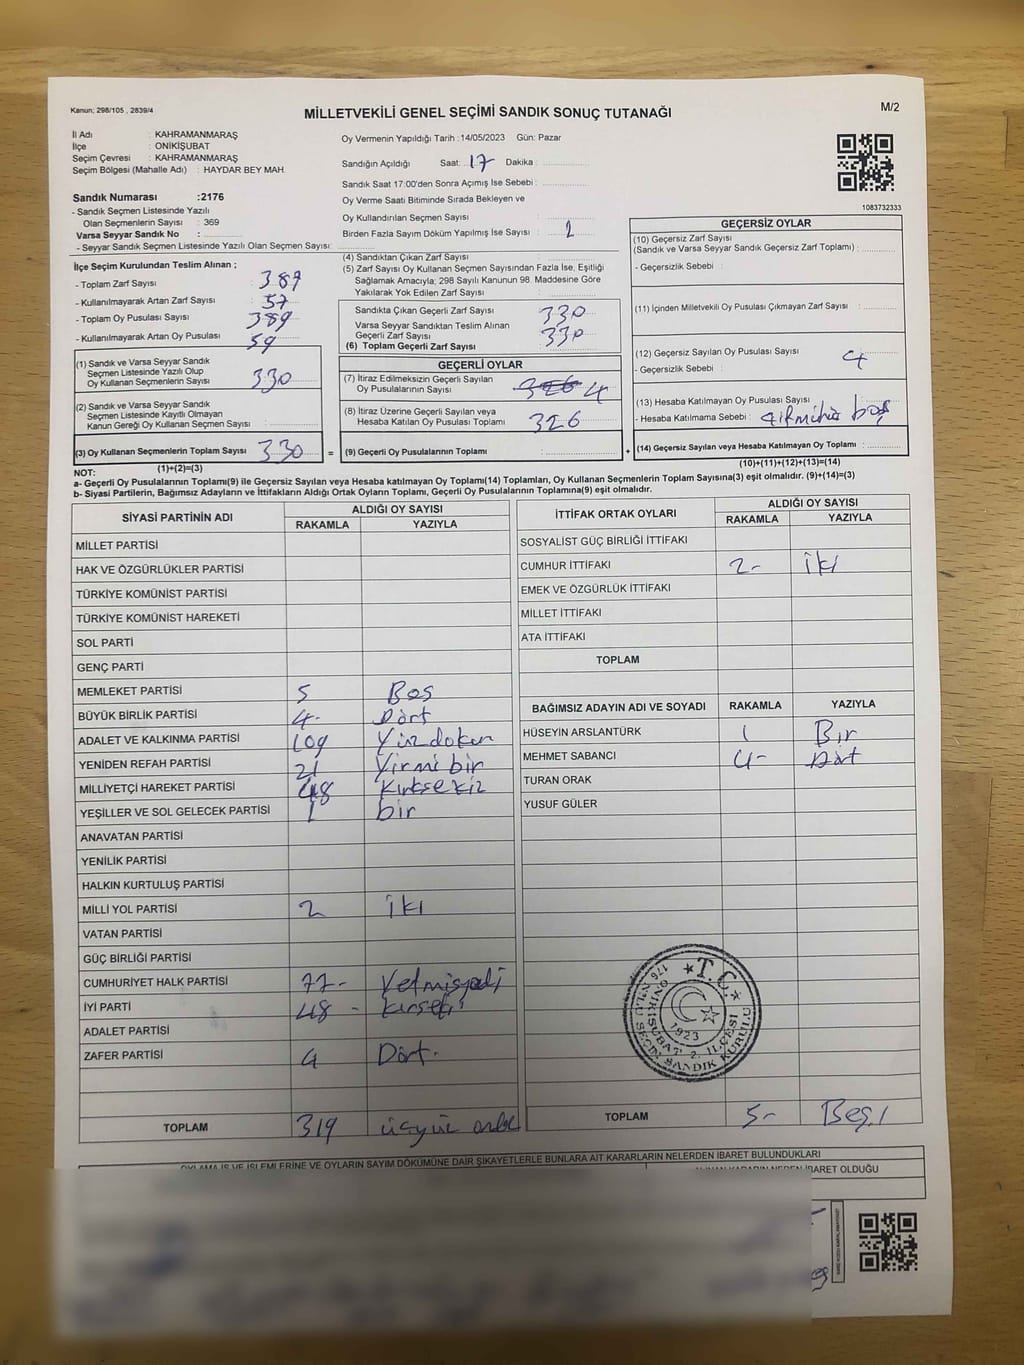 Kanun; 298/105 , 2839/4
MİLLETVEKİLİ GENEL SEÇİMİ SANDIK SONUÇ TUTANAĞI
M/2
İl Adı : KAHRAMANMARAŞ
İlçe : ONİKİŞUBAT
Seçim Çevresi : KAHRAMANMARAŞ
Seçim Bölgesi (Mahalle Adı) : HAYDAR BEY MAH.
Sandık Numarası :2176
- Sandık Seçmen Listesinde Yazılı
Olan Seçmenlerin Sayısı : 369
Varsa Seyyar Sandık No :
- Seyyar Sandık Seçmen Listesinde Yazılı Olan Seçmen Sayısı:
Oy Vermenin Yapıldığı Tarih :14/05/2023 Gün: Pazar
Sandığın Açıldığı Saat: 17 Dakika :
Sandık Saat 17:00'den Sonra Açımış İse Sebebi :
Oy Verme Saati Bitiminde Sırada Bekleyen ve
Oy Kullandırılan Seçmen Sayısı :
Birden Fazla Sayım Döküm Yapılmış İse Sayısı :
1083732333
İlçe Seçim Kurulundan Teslim Alınan ;
- Toplam Zarf Sayısı : 387
- Kullanılmayarak Artan Zarf Sayısı : 57
- Toplam Oy Pusulası Sayısı : 389
- Kullanılmayarak Artan Oy Pusulası : 59
(1) Sandık ve Varsa Seyyar Sandık
Seçmen Listesinde Yazılı Olup
Oy Kullanan Seçmenlerin Sayısı : 330
(2) Sandık ve Varsa Seyyar Sandık
Seçmen Listesinde Kayıtlı Olmayan
Kanun Gereği Oy Kullanan Seçmen Sayısı :
(3) Oy Kullanan Seçmenlerin Toplam Sayısı : 330
(1)+(2)=(3)
(4) Sandıktan Çıkan Zarf Sayısı :
(5) Zarf Sayısı Oy Kullanan Seçmen Sayısından Fazla İse, Eşitliği
Sağlamak Amacıyla; 298 Sayılı Kanunun 98. Maddesine Göre
Yakılarak Yok Edilen Zarf Sayısı :
Sandıkta Çıkan Geçerli Zarf Sayısı : 330
Varsa Seyyar Sandıktan Teslim Alınan
Geçerli Zarf Sayısı : 330
(6) Toplam Geçerli Zarf Sayısı :
GEÇERLİ OYLAR
(7) İtiraz Edilmeksizin Geçerli Sayılan
Oy Pusulalarının Sayısı : 326 4
(8) İtiraz Üzerine Geçerli Sayılan veya
Hesaba Katılan Oy Pusulası Toplamı : 326
= (9) Geçerli Oy Pusulalarının Toplamı :
GEÇERSİZ OYLAR
(10) Geçersiz Zarf Sayısı
(Sandık ve Varsa Seyyar Sandık Geçersiz Zarf Toplamı) :
- Geçersizlik Sebebi :
(11) İçinden Milletvekili Oy Pusulası Çıkmayan Zarf Sayısı :
(12) Geçersiz Sayılan Oy Pusulası Sayısı : 4
- Geçersizlik Sebebi :
(13) Hesaba Katılmayan Oy Pusulası Sayısı :
- Hesaba Katılmama Sebebi : boş
+ (14) Geçersiz Sayılan veya Hesaba Katılmayan Oy Toplamı :
(10)+(11)+(12)+(13)=(14)
NOT:
a- Geçerli Oy Pusulalarının Toplamı(9) ile Geçersiz Sayılan veya Hesaba katılmayan Oy Toplamı(14) Toplamları, Oy Kullanan Seçmenlerin Toplam Sayısına(3) eşit olmalıdır. (9)+(14)=(3)
b- Siyasi Partilerin, Bağımsız Adayların ve İttifakların Aldığı Ortak Oyların Toplamı, Geçerli Oy Pusulalarının Toplamına(9) eşit olmalıdır.
SİYASİ PARTİNİN ADI ALDIĞI OY SAYISI
RAKAMLA YAZIYLA
MİLLET PARTİSİ
HAK VE ÖZGÜRLÜKLER PARTİSİ
TÜRKİYE KOMÜNİST PARTİSİ
TÜRKİYE KOMÜNİST HAREKETİ
SOL PARTİ
GENÇ PARTİ
MEMLEKET PARTİSİ 5 Beş
BÜYÜK BİRLİK PARTİSİ 4- Dört
ADALET VE KALKINMA PARTİSİ 109 Yüzdokuz
YENİDEN REFAH PARTİSİ 21 Yirmi bir
MİLLİYETÇİ HAREKET PARTİSİ 48 Kırksekiz
YEŞİLLER VE SOL GELECEK PARTİSİ 1 bir
ANAVATAN PARTİSİ
YENİLİK PARTİSİ
HALKIN KURTULUŞ PARTİSİ
MİLLİ YOL PARTİSİ 2 İki
VATAN PARTİSİ
GÜÇ BİRLİĞİ PARTİSİ
CUMHURİYET HALK PARTİSİ 77- Yetmişyedi
İYİ PARTİ 48 -
ADALET PARTİSİ
ZAFER PARTİSİ 4 Dört.
TOPLAM 319
İTTİFAK ORTAK OYLARI ALDIĞI OY SAYISI
RAKAMLA YAZIYLA
SOSYALİST GÜÇ BİRLİĞİ İTTİFAKI
CUMHUR İTTİFAKI 2- İki
EMEK VE ÖZGÜRLÜK İTTİFAKI
MİLLET İTTİFAKI
ATA İTTİFAKI
TOPLAM
BAĞIMSIZ ADAYIN ADI VE SOYADI RAKAMLA YAZIYLA
HÜSEYİN ARSLANTÜRK 1 Bir
MEHMET SABANCI 4- Dört
TURAN ORAK
YUSUF GÜLER
T.C.
1923
ONİKİŞUBAT 2. İLÇESİ
SEÇİM SANDIK KURULU
TOPLAM 5- Beş
OYLAMA İŞ VE İŞLEMLERİNE VE OYLARIN SAYIM DÖKÜMÜNE DAİR ŞİKAYETLERLE BUNLARA AİT KARARLARIN NELERDEN İBARET BULUNDUKLARI
İBARET OLDUĞU